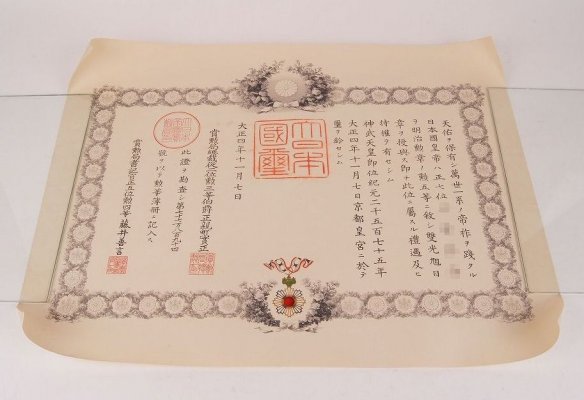 天佑ヲ保有シ萬世一系ノ帝祚ヲ踐タル
日本國皇帝ハ正七位
ヲ明治勲章ノ勲五等ニ敍シ雙光旭日
章ヲ授與ス即チ此位ニ屬スル禮遇及ヒ
特權ヲ有セシム
神武天皇即位紀元二千五百七十五年
大正四年十一月七日京都皇宮ニ於テ
璽ヲ鈐セシム
大日本
國璽
大正四年十一月七日
賞勲局總裁從二位勲三等伯爵正親町實正
此證ヲ勘査シ第十七万八百九十四
號ヲ以テ勲等簿冊ニ記入ス
賞勲局書記官正五位勲四等藤井善言